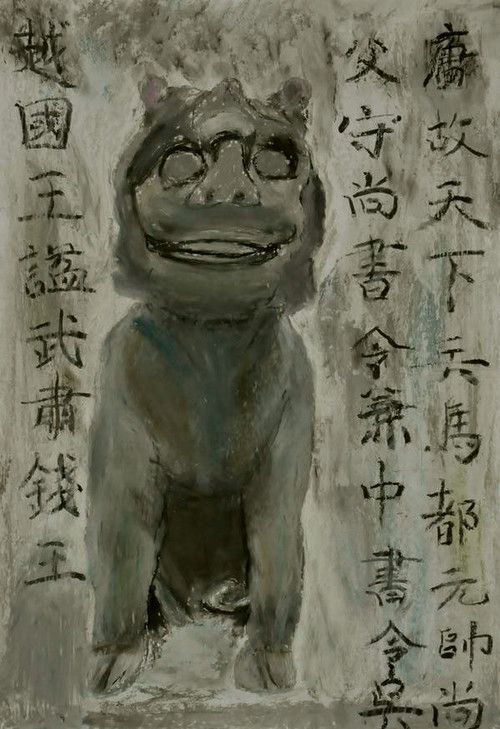 唐故天下兵馬都元帥尚
父守尚書令兼中書令吳
越國王謚武肅錢王